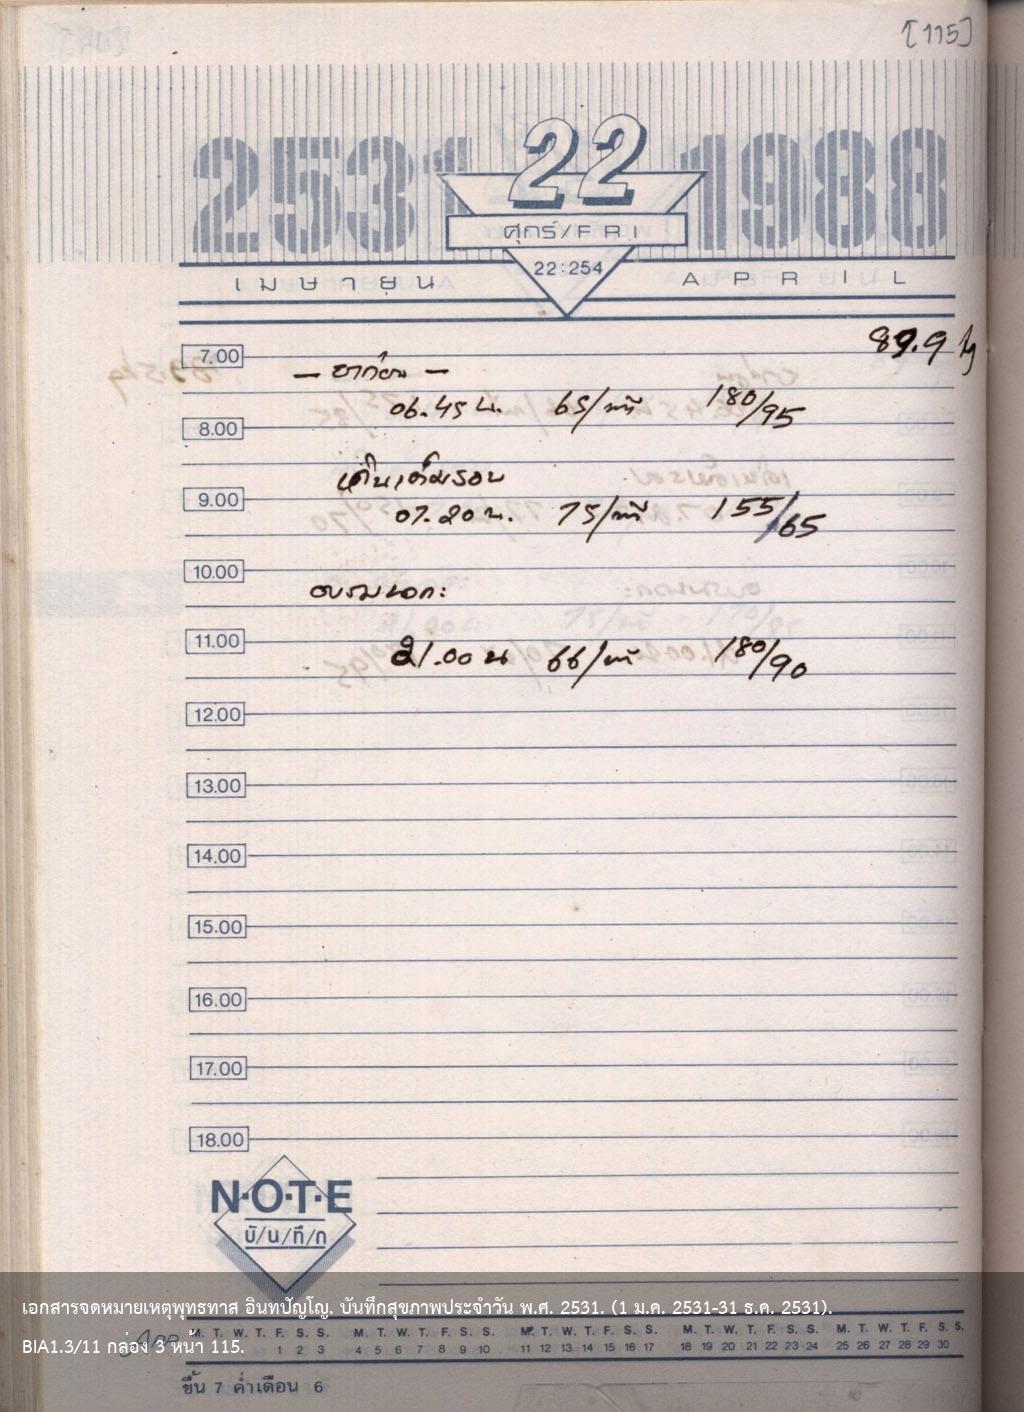 [115]
2531 22 1988
ศุกร์/FRI
22:254
เมษายน APRIL
7.00 89.9 kg
06.45 น. 65/นาที 180/95
8.00
เดินเต็มรอบ
9.00
07.20 น. 75/นาที 155/65
10.00
11.00
21.00 น 66/นาที 180/90
12.00
13.00
14.00
15.00
16.00
17.00
18.00
N·O·T·E
บั/น/ทึ/ก
เอกสารจดหมายเหตุพุทธทาส อินทปัญโญ. บันทึกสุขภาพประจำวัน พ.ศ. 2531. (1 ม.ค. 2531-31 ธ.ค. 2531).
M. T. W. T. F. S. S. M. T. W. T. F. S. S. M. T. W. T. F. S. S. M. T. W. T. F. S. S. M. T. W. T. F. S. S.
BIA1.3/11 กล่อง 3 หน้า 115.
1 2 3 4 5 6 7 8 9 10 11 12 13 14 15 16 17 18 19 20 21 22 23 24 25 26 27 28 29 30
ขึ้น 7 ค่ำเดือน 6